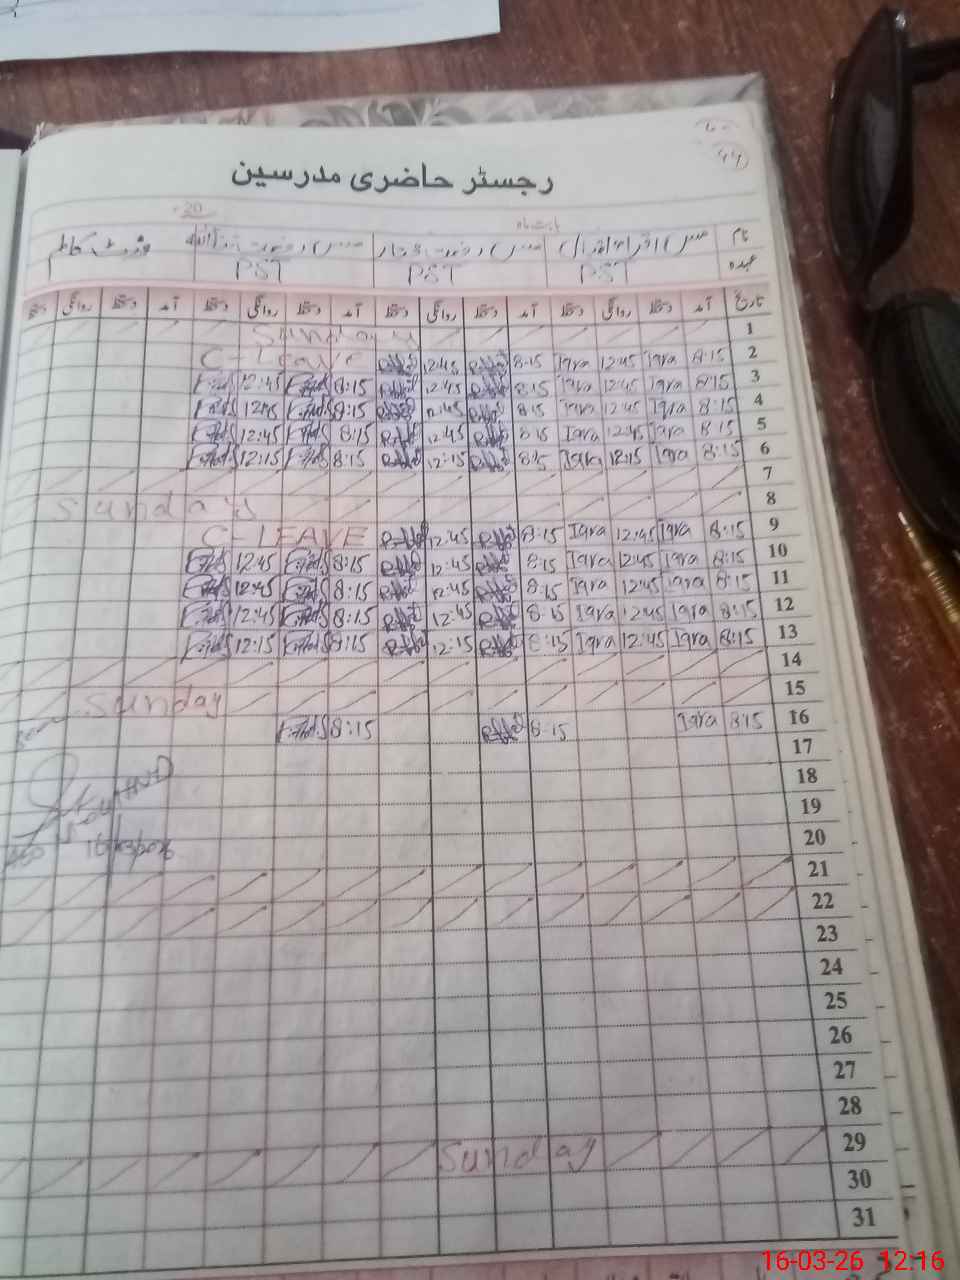 رجسٹر حاضری مدرسین
20
بابت ماہ
نام مس اقراء اقبال مس رفعت
عہدہ PST PST PST
تاریخ آمد دستخط روانگی دستخط آمد دستخط روانگی دستخط آمد دستخط روانگی دستخط آمد دستخط روانگی دستخط
1 Sunday
2 8:15 Iqra 12:45 Iqra 8:15 12:45 C-Leave
3 8:15 Iqra 12:45 Iqra 8:15 12:45 8:15 12:45
4 8:15 Iqra 12:45 Iqra 8:15 12:45 8:15 12:45
5 8:15 Iqra 12:45 Iqra 8:15 12:45 8:15 12:45
6 8:15 Iqra 12:15 Iqra 8:15 12:15 8:15 12:15
7
8 Sunday
9 8:15 Iqra 12:45 Iqra 8:15 12:45 C-LEAVE
10 8:15 Iqra 12:45 Iqra 8:15 12:45 8:15 12:45
11 8:15 Iqra 12:45 Iqra 8:15 12:45 8:15 12:45
12 8:15 Iqra 12:45 Iqra 8:15 12:45 8:15 12:45
13 8:15 Iqra 12:45 Iqra 8:15 12:15 8:15 12:15
14
15 Sunday
16 8:15 Iqra 8:15 8:15
17
18
19
20
21
22
23
24
25
26
27
28
29 Sunday
30
31
16-03-26 12:16